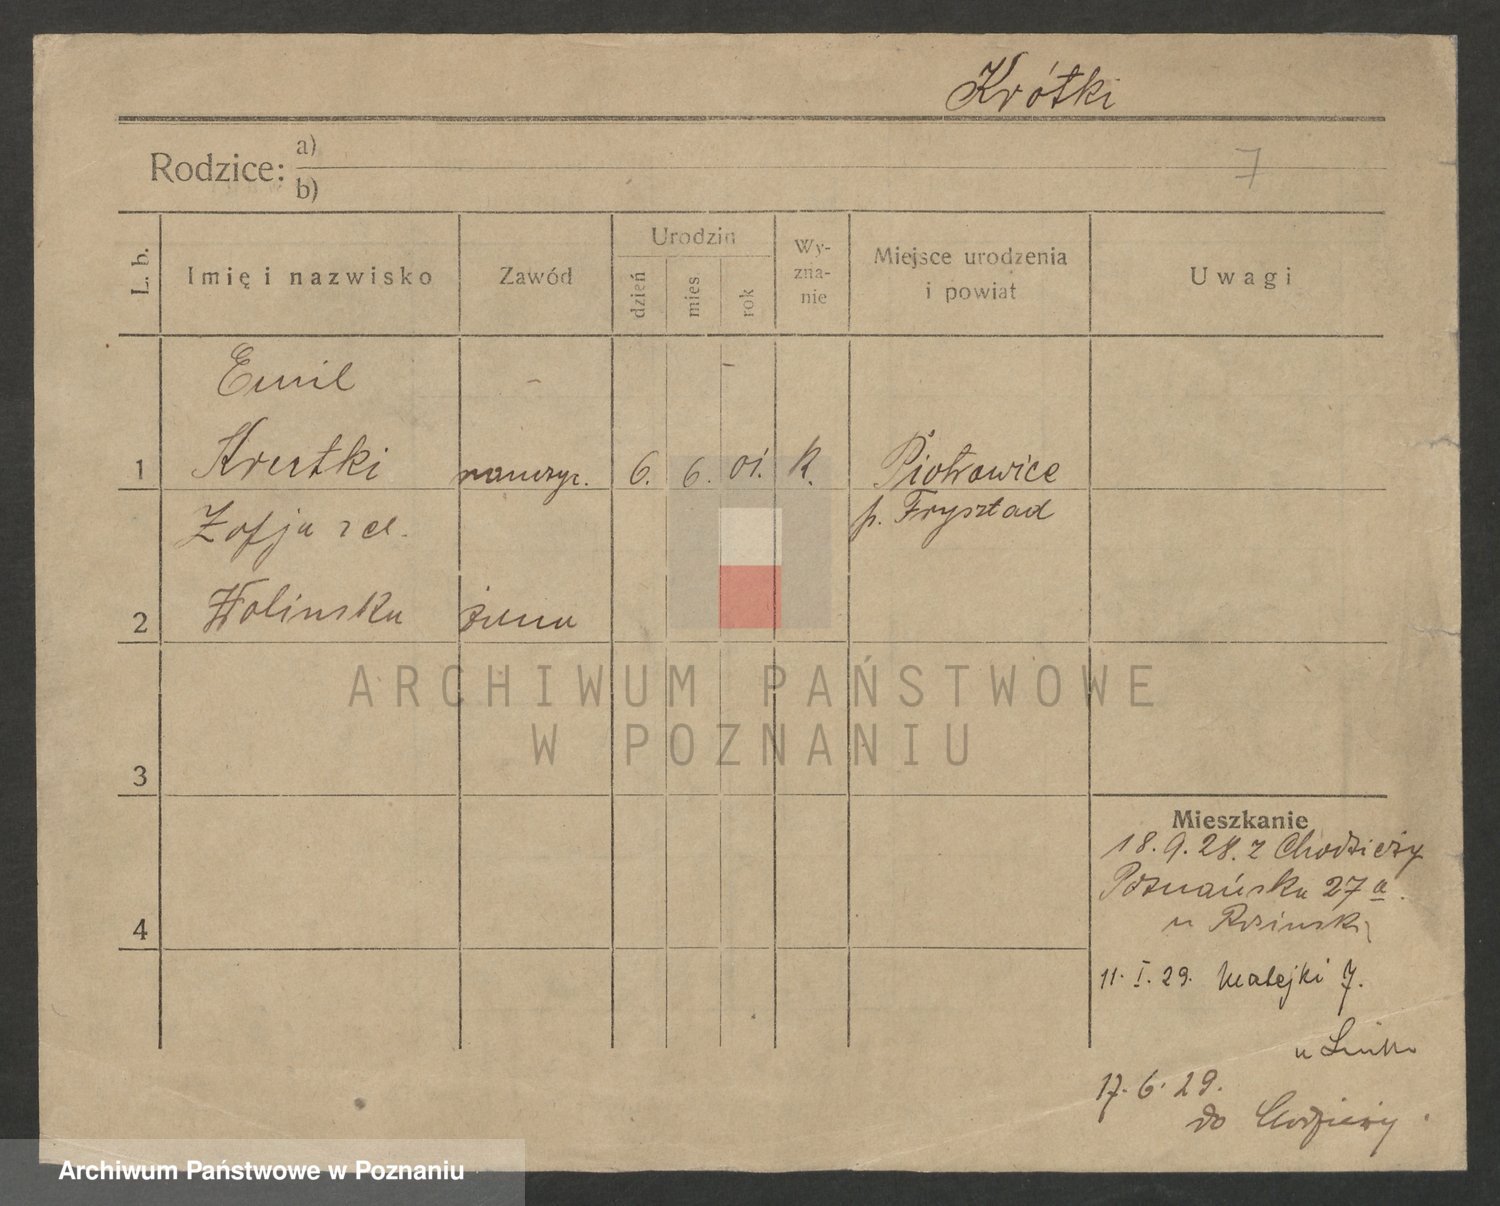 Krótki
Rodzice: a)
b)
7
L. b.
Imię i nazwisko
Zawód
Urodzin
dzień
mies
rok
Wy-
zna-
nie
Miejsce urodzenia
i powiat
Uwagi
Emil
1 Krutki nauczyc. 6. 6. 01. K. Piotrowice
p. Frysztad
Zofja z d.
2 Wolinska żona
3
4
Mieszkanie
18. 9. 28. z Chodzieży
Poznańska 27 a.
u
11. I. 29. Matejki 7.
u
17. 6. 29.
do Chodzieży
ARCHIWUM PAŃSTWOWE
W POZNANIU
Archiwum Państwowe w Poznaniu